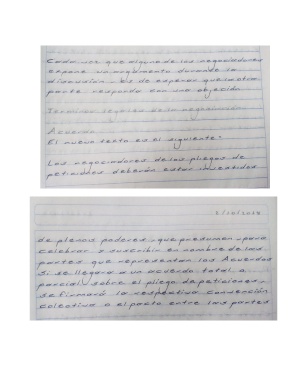 Cada vez que alguno de los negociadores
expone un argumento durante la
discusión - es de esperar que la otra
parte responda con una objeción
Acuerdo
El nuevo texto es el siguiente:
Los negociadores de los pliegos de
peticiones deberán estar investidos
de plenos poderes, que presumen, para
celebrar y suscribir en nombre de las
partes que representan los Acuerdos
Si se llegara a un acuerdo total o
parcial sobre el pliego de peticiones,
se firmará la respectiva convención
colectiva o el pacto entre las partes